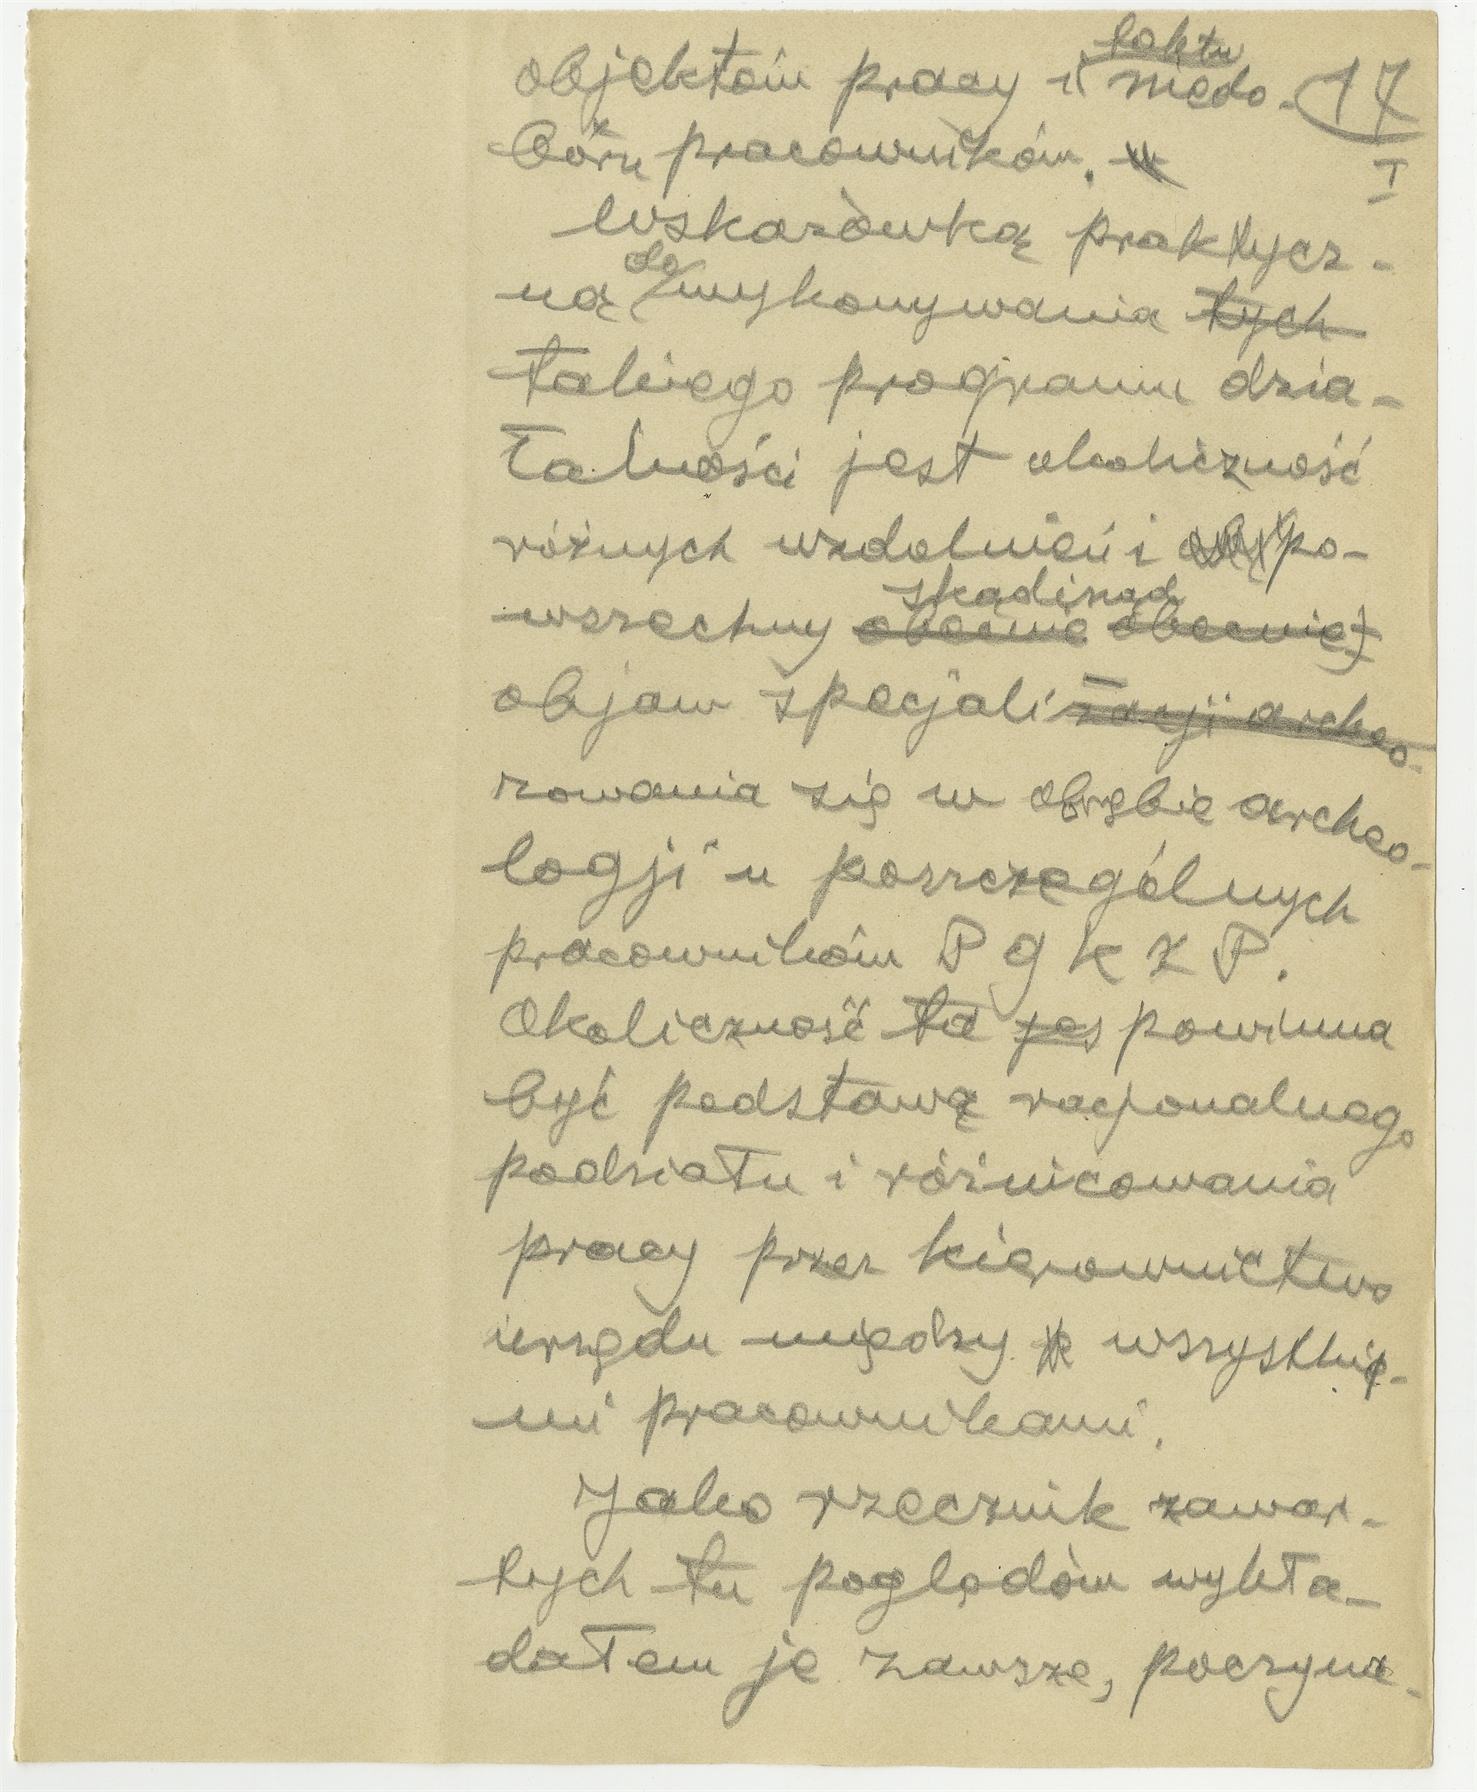 faktu
objektów pracy i niedo- 17
boru pracowników. I
Wskazówką praktycz-
ną do wykonywania tych
takiego programu dzia-
łalności jest okoliczność
różnych uzdolnień i po-
skądinąd
wszechny obecnie obecnie)
objaw specjalizacji archeo-
zowania się w obrębie archeo-
logji u poszczególnych
pracowników P G K Z P.
Okoliczność ta jes powinna
być podstawą racjonalnego
podziału i różnicowania
pracy przez kierownictwo
urzędu między wszystkie-
mi pracownikami.
Jako rzecznik zawar-
tych tu poglądów wykła-
dałem je zawsze, poczyna-